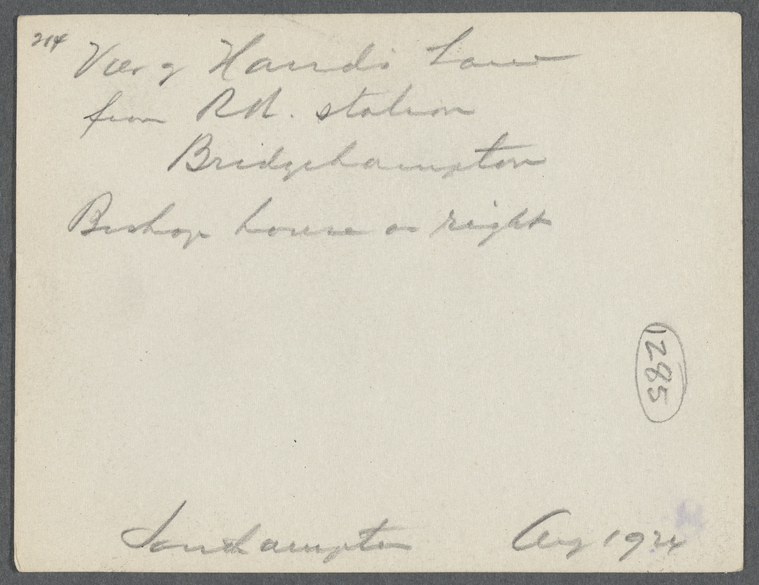 214
View of Hands Lane
from RR. station
Bridgehampton
Bishop house on right
1285
Southampton Aug 192